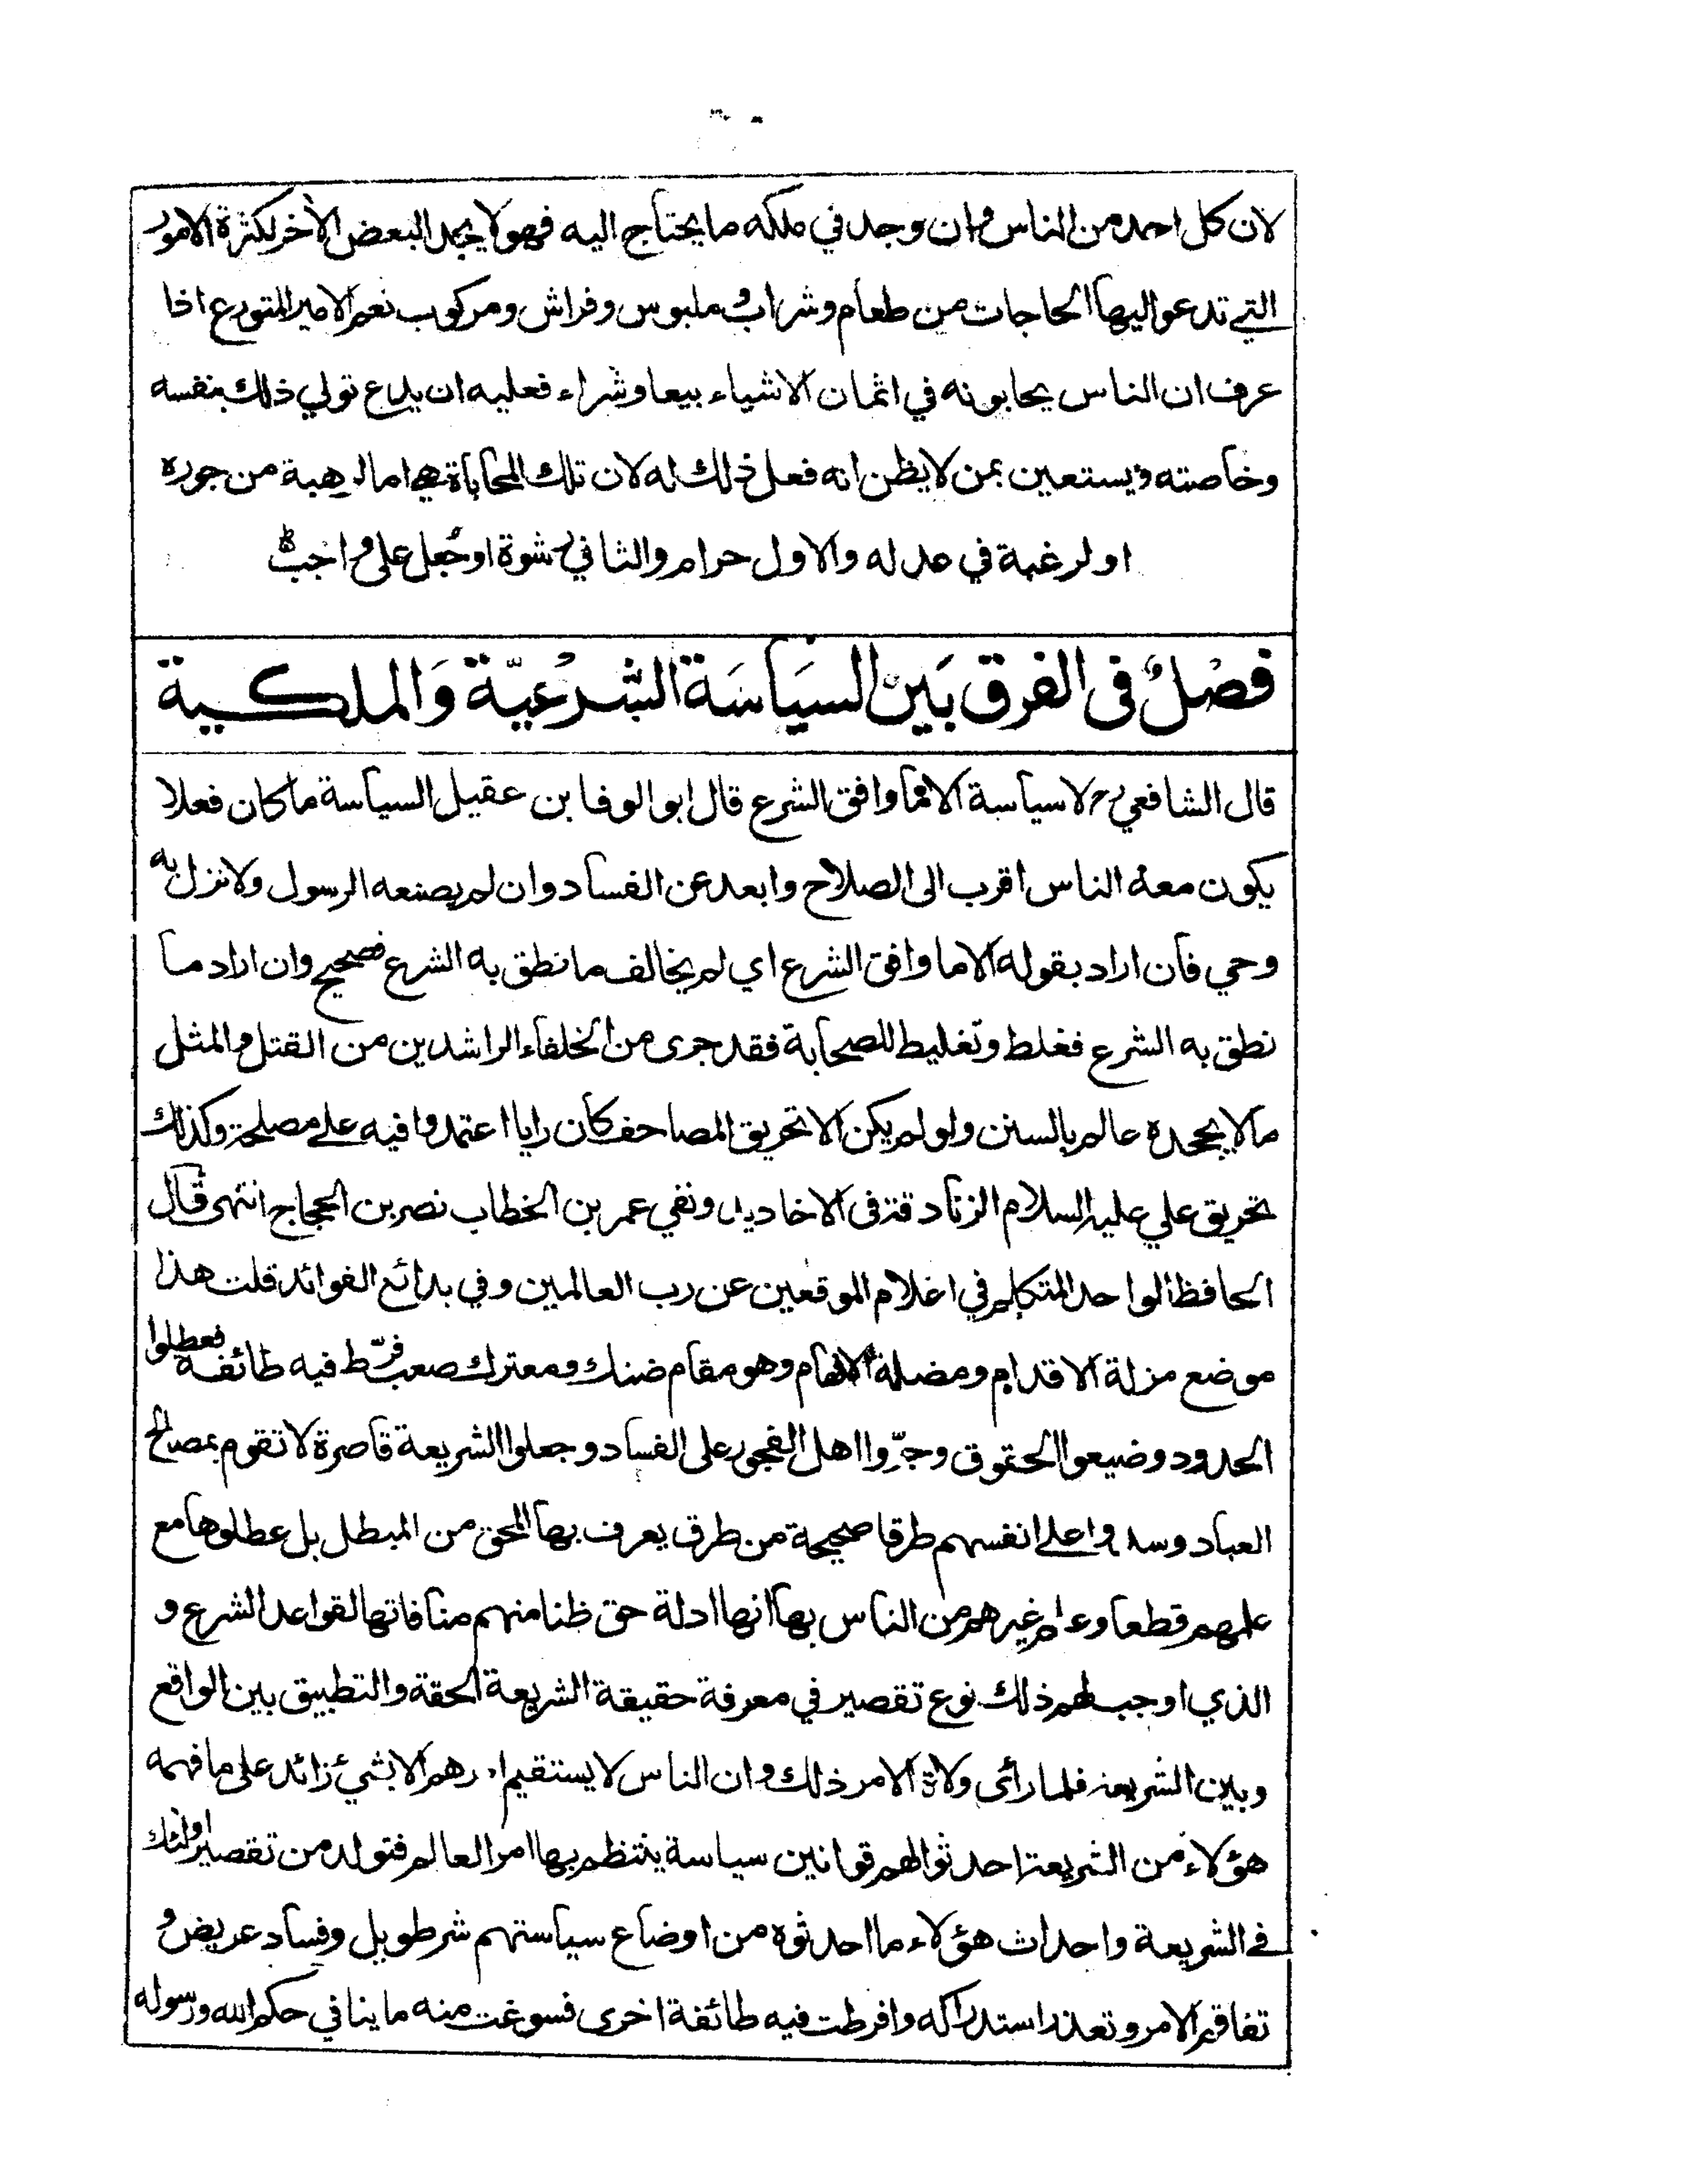 لان كل احد من الناس وان وجد في ملكه ما يحتاج اليه فهو لا يجد البعض الأخر لكثرة الامور
التي تدعو اليها الحاجات من طعام وشراب وملبوس وفراش ومركوب نعم الامير المتورع اذا
عرف ان الناس يحابونه في اثمان الاشياء بيعا وشراء فعليه ان يدع تولي ذلك بنفسه
وخاصته ويستعين بمن لا يظن انه فعل ذلك له لان تلك المحاباة هي اما لرهبة من جوره
او لرغبة في عدله والاول حرام والثاني رشوة او جُعل على واجب
فصْلٌ فى الفرق بَين السيَاسَة الشرْعيّة وَالملكية
قال الشافعي رح لا سياسة الا ما وافق الشرع قال ابو الوفا بن عقيل السياسة ما كان فعلا
يكون معه الناس اقرب الى الصلاح وابعد عن الفساد وان لم يصنعه الرسول ولا نزل به
وحي فان اراد بقوله الا ما وافق الشرع اي لم يخالف ما نطق به الشرع فصحيح وان اراد ما
نطق به الشرع فغلط وتغليط للصحابة فقد جرى من الخلفاء الراشدين من القتل والمثل
ما لا يجحده عالم بالسنن ولو لم يكن الا تحريق المصاحف كان رايا اعتمدوا فيه على مصلحة وكذلك
تحريق علي عليه السلام الزنادقة فى الاخاديد ونفي عمر بن الخطاب نصر بن الحجاج انتهى قال
الحافظ الواحد المتكلم في اعلام الموقعين عن رب العالمين وفي بدائع الفوائد قلت هذا
موضع مزلة الاقدام ومضلة الافهام وهو مقام ضنك ومعترك صعب فرّط فيه طائفة فعطلوا
الحدود وضيعوا الحقوق وجرّوا اهل الفجور على الفساد وجعلوا الشريعة قاصرة لا تقوم بمصالح
العباد وسدوا على انفسهم طرقا صحيحة من طرق يعرف بها المحق من المبطل بل عطلوها مع
علمهم قطعا وعلم غيرهم من الناس بها انها ادلة حق ظنا منهم منافاتها لقواعد الشرع و
الذي اوجب لهم ذلك نوع تقصير في معرفة حقيقة الشريعة الحقة والتطبيق بين الواقع
وبين الشريعة فلما رأى ولاة الامر ذلك وان الناس لا يستقيم امرهم الا بشيء زائد على ما فهمه
هؤلاء من الشريعة احدثوا لهم قوانين سياسة ينتظم بها امر العالم فتولد من تقصير اولئك
في الشريعة واحداث هؤلاء ما احدثوه من اوضاع سياستهم شر طويل وفساد عريض و
تفاقم الامر وتعذر استدراكه وافرطت فيه طائفة اخرى فسوغت منه ما ينافي حكم الله ورسوله